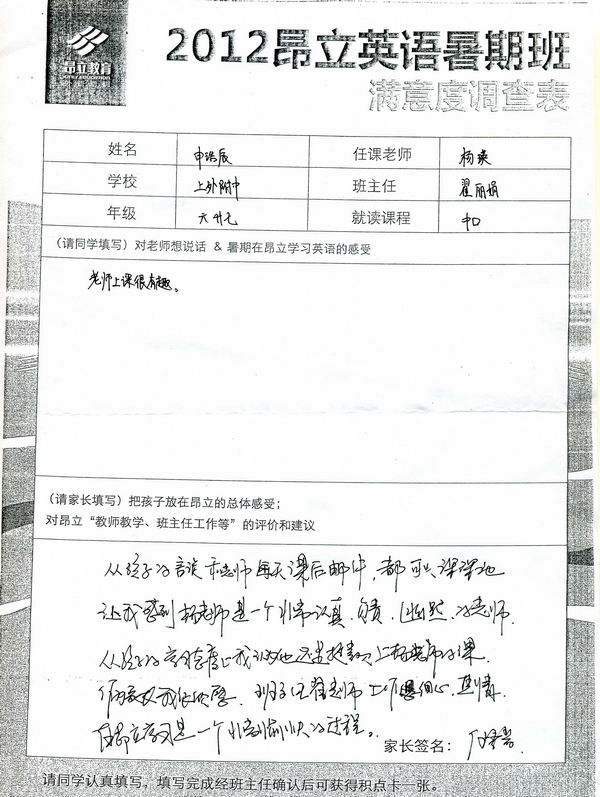 昂立教育
2012昂立英语暑期班
满意度调查表
姓名 申浩辰 任课老师 杨瑛
学校 上外附中 班主任 翟丽娟
年级 六升七 就读课程 中口
(请同学填写)对老师想说话 & 暑期在昂立学习英语的感受
老师上课很有趣。
(请家长填写)把孩子放在昂立的总体感受;
对昂立“教师教学、班主任工作等”的评价和建议
从孩子的言谈和老师每天课后邮件,都可以深深地
让我感到杨老师是一个非常认真、负责、的老师.
从孩子的言行态度上我认为他还是挺喜欢上杨老师的课.
班主任翟老师工作细心、热情.
是一个非常愉快的过程。
家长签名:
请同学认真填写,填写完成经班主任确认后可获得积点卡一张。